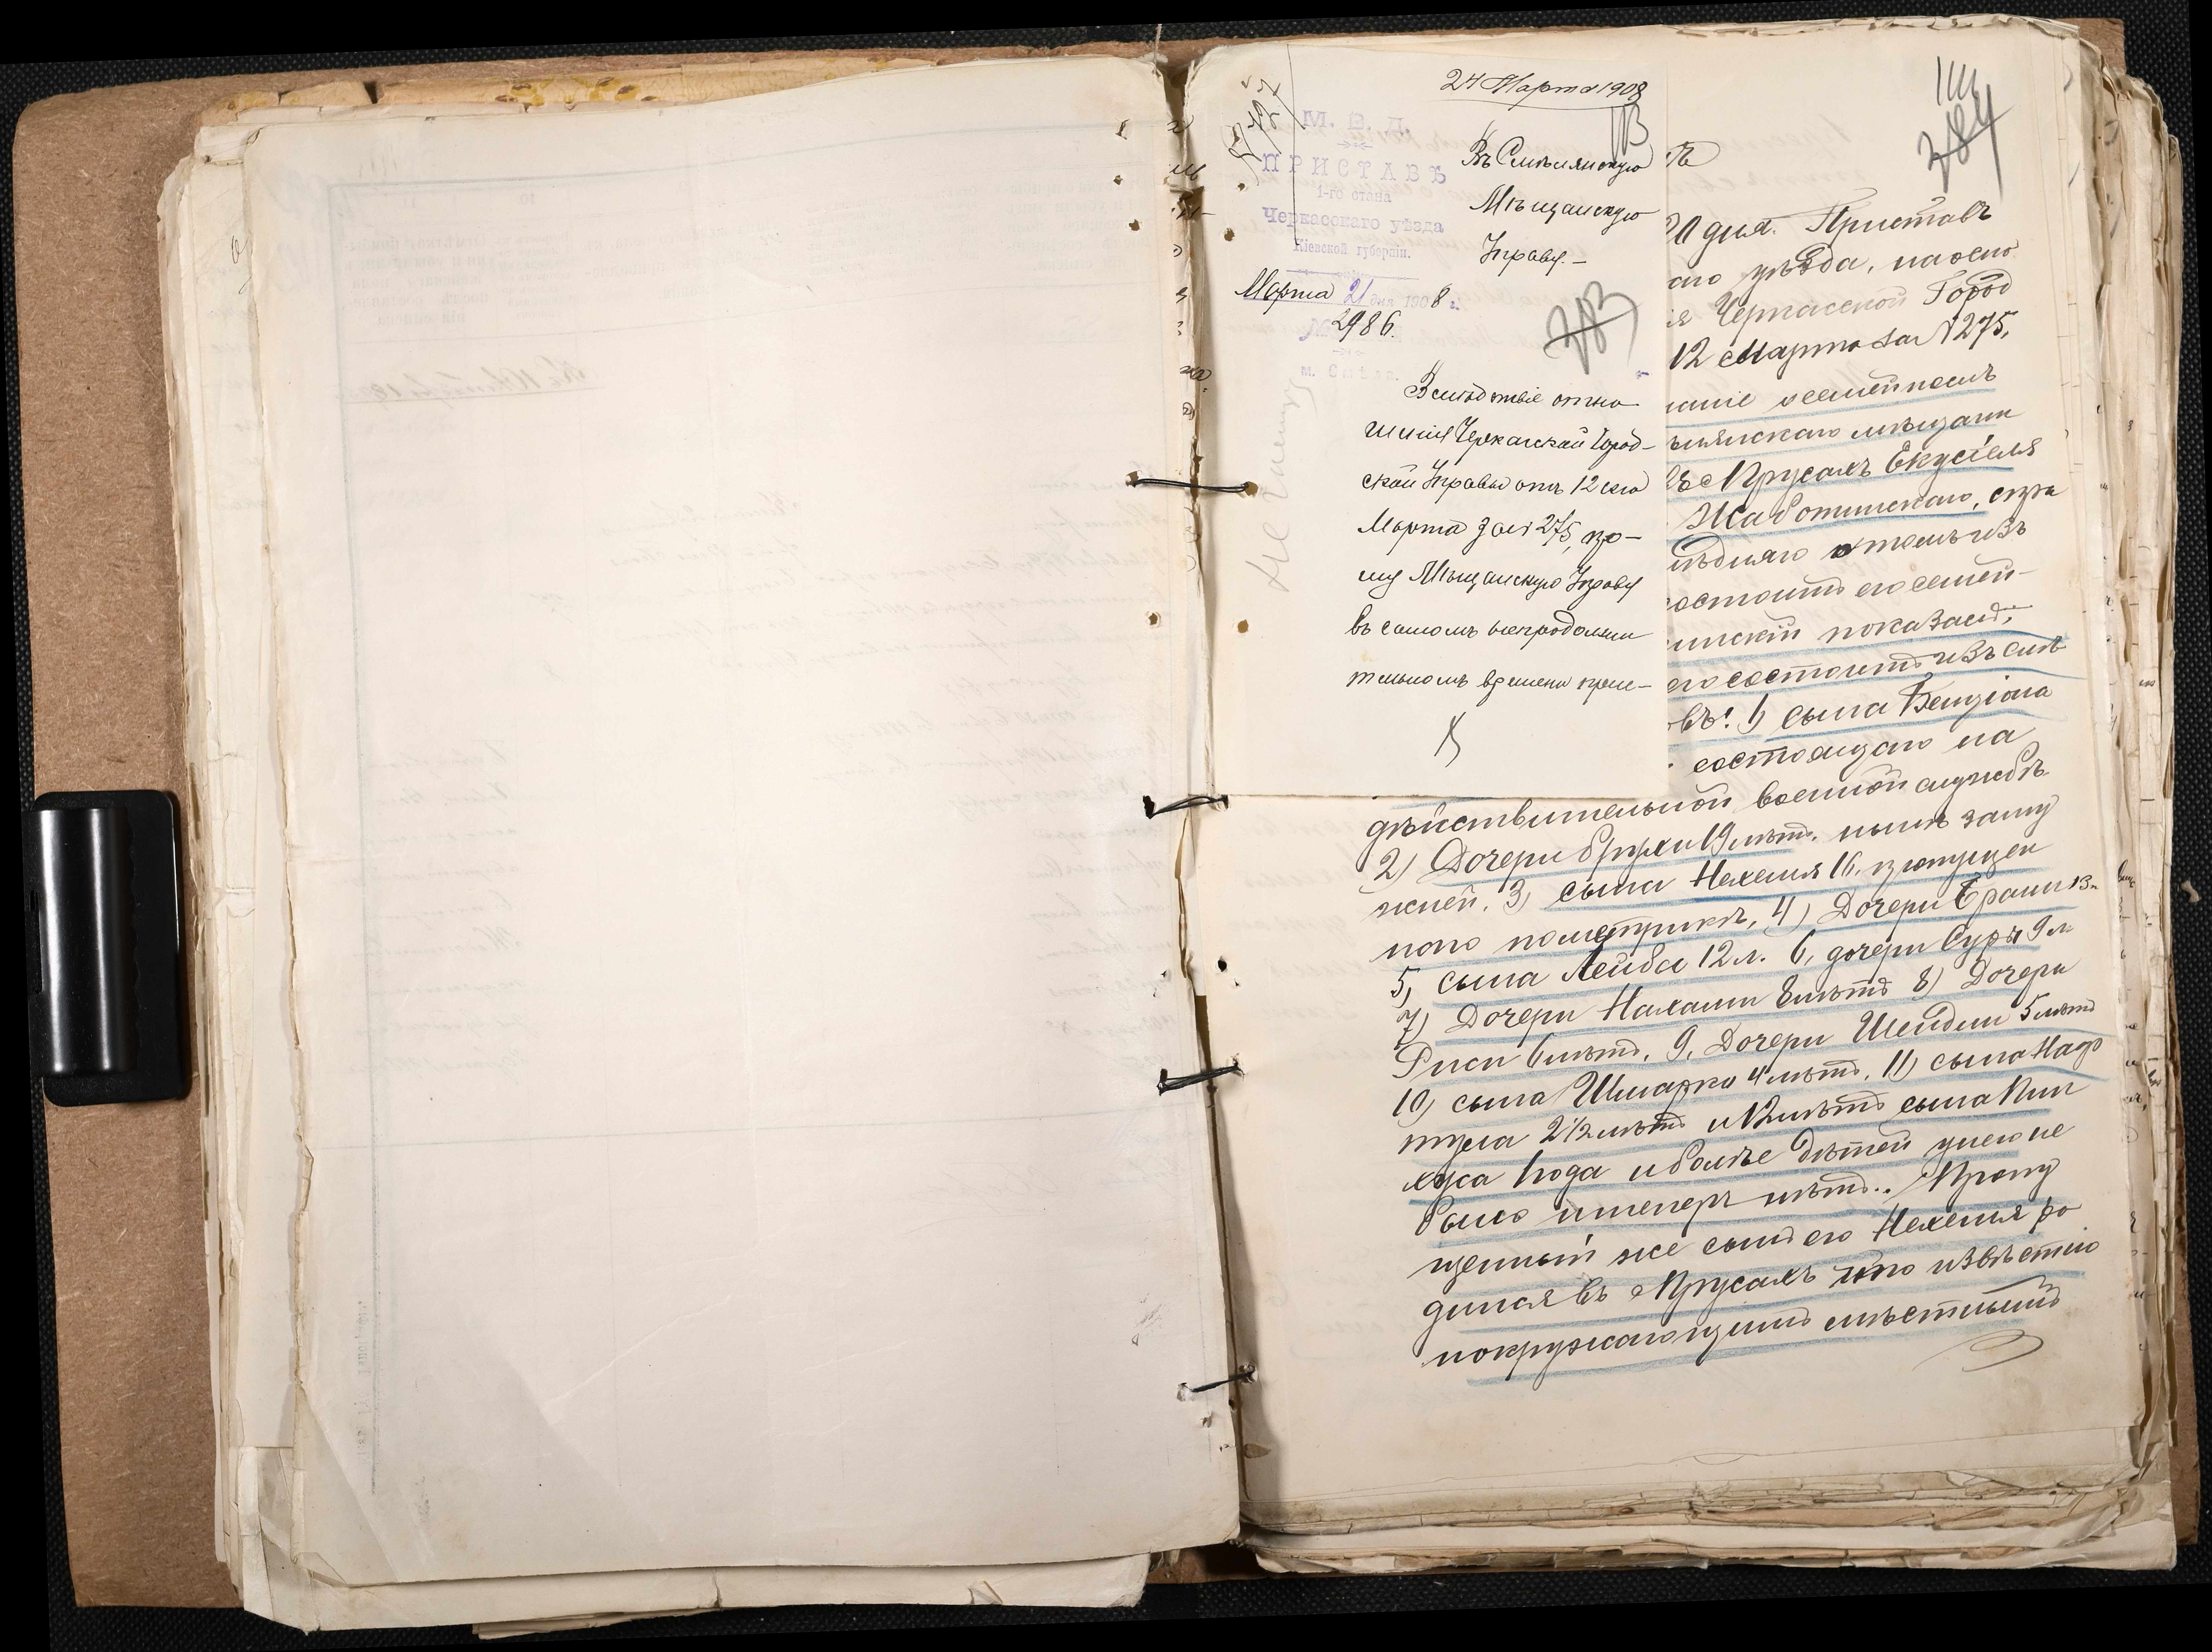 24 Марта 1908
М. В. Д.
ПРИСТАВЪ
1-го стана
Черкасскаго уѣзда
Кіевской губерніи.
Марта 21 дня 1908 г.
№ 2986.
м. Смѣла.
Въ Смѣлянскую
Мѣщанскую
Управу.-
283
Вслѣдствіе отно
шенія Черкасской Город-
ской Управы отъ 12 сего
Марта за № 275, про-
шу Мѣщанскую Управу
въ самомъ непродолжи
тельномъ времени
284
20 дня. Приставъ
аго уѣзда, на осно
ія Черкасской Город
12 Марта за № 275,
аніе о семейномъ
ѣлянскаго мѣщани
Прусахъ Екусіеля
Жаботинскаго, спра
ѣдняго о томъ изъ
остоитъ его семей-
инскій показалъ,
его состоитъ изъ слѣ
овъ: 1) сына Бенціона
состоящаго на
дѣйствительной военной службѣ
2) Дочери Брухи 19 лѣтъ. нынѣ заму
жней. 3) сына Нехемія 16, пропущен
ного по метрикѣ, 4) Дочери 13л
5, сына Лейба 12 л. 6, дочери Суры 9 л
7) Дочери Нахамы 8 лѣтъ 8) Дочери
Риси 6 лѣтъ. 9, Дочери Шейдли 5 лѣтъ
10) сына Шмарко 4 лѣтъ. 11) сына Наф
тула 2½ лѣтъ и 12 лѣтъ сына Пин
хуса 1 года и болѣе дѣтей у него не
было и теперь нѣтъ.. Пропу
щенный же сынъ его Нехемія ро
дился въ Прусахъ что извѣстно
и окружающимъ мѣстнымъ